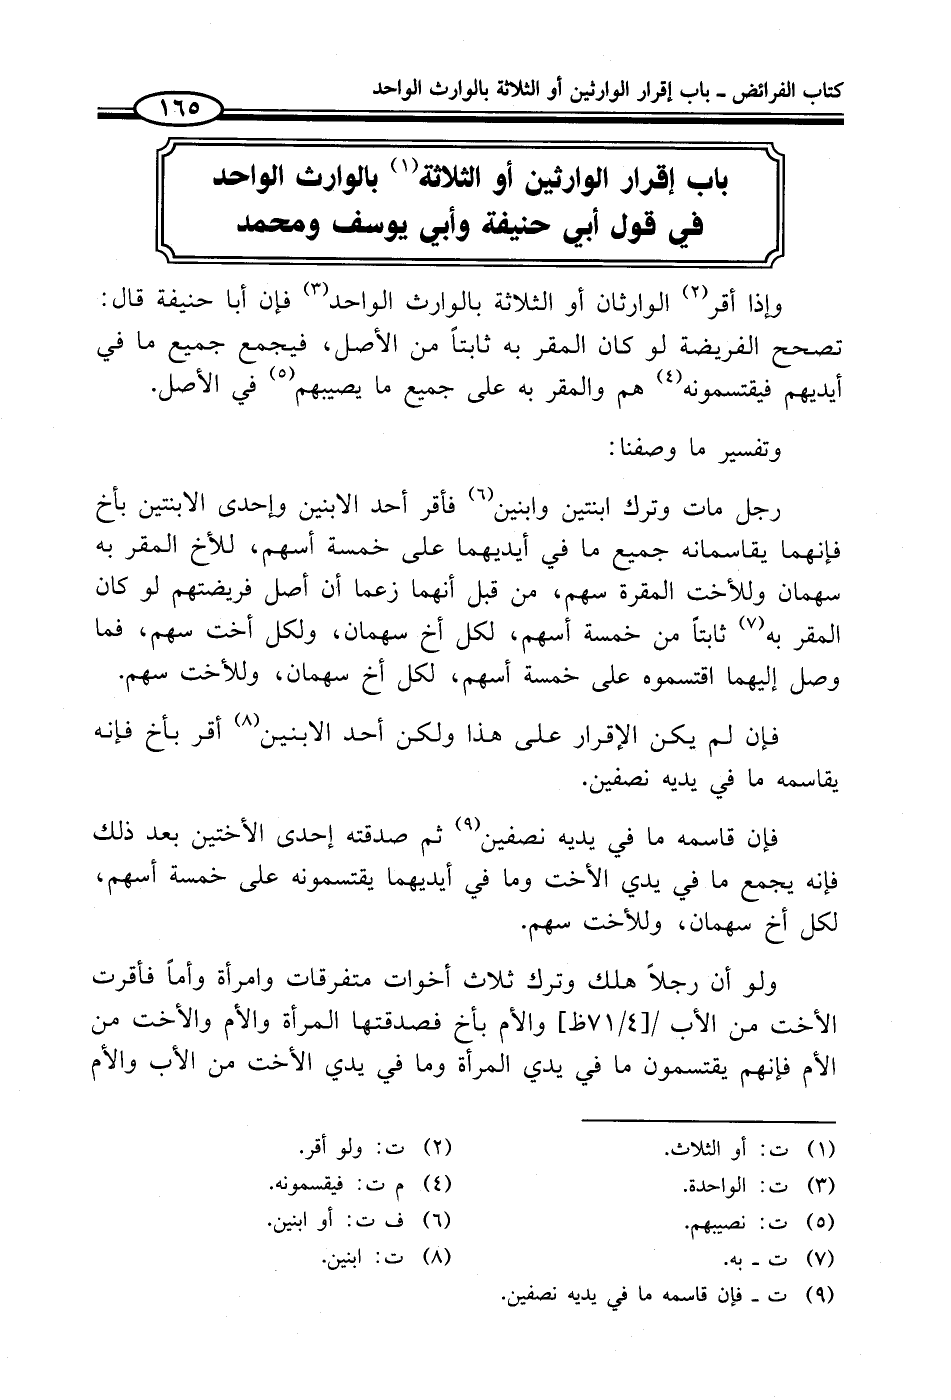 كتاب الفرائض - باب إقرار الوارثين أو الثلاثة بالوارث الواحد
١٦٥
باب إقرار الوارثين أو الثلاثة(١) بالوارث الواحد
في قول أبي حنيفة وأبي يوسف ومحمد
وإذا أقر(٢) الوارثان أو الثلاثة بالوارث الواحد(٣) فإن أبا حنيفة قال:
تصحح الفريضة لو كان المقر به ثابتاً من الأصل، فيجمع جميع ما في
أيديهم فيقتسمونه(٤) هم والمقر به على جميع ما يصيبهم(٥) في الأصل.
وتفسير ما وصفنا:
رجل مات وترك ابنتين وابنين(٦) فأقر أحد الابنين وإحدى الابنتين بأخ
فإنهما يقاسمانه جميع ما في أيديهما على خمسة أسهم، للأخ المقر به
سهمان وللأخت المقرة سهم، من قبل أنهما زعما أن أصل فريضتهم لو كان
المقر به(٧) ثابتاً من خمسة أسهم، لكل أخ سهمان، ولكل أخت سهم، فما
وصل إليهما اقتسموه على خمسة أسهم، لكل أخ سهمان، وللأخت سهم.
فإن لم يكن الإقرار على هذا ولكن أحد الابنين(٨) أقر بأخ فإنه
يقاسمه ما في يديه نصفين.
فإن قاسمه ما في يديه نصفين(٩) ثم صدقته إحدى الأختين بعد ذلك
فإنه يجمع ما في يدي الأخت وما في أيديهما يقتسمونه على خمسة أسهم،
لكل أخ سهمان، وللأخت سهم.
ولو أن رجلاً هلك وترك ثلاث أخوات متفرقات وامرأة وأماً فأقرت
الأخت من الأب /[٧١/٤ظ] والأم بأخ فصدقتها المرأة والأم والأخت من
الأم فإنهم يقتسمون ما في يدي المرأة وما في يدي الأخت من الأب والأم
(١) ت: أو الثلاث.
(٢) ت: ولو أقر.
(٣) ت: الواحدة.
(٤) م ت: فيقسمونه.
(٥) ت: نصيبهم.
(٦) ف ت: أو ابنين.
(٧) ت ـ به.
(٨) ت: ابنين.
(٩) ت ـ فإن قاسمه ما في يديه نصفين.